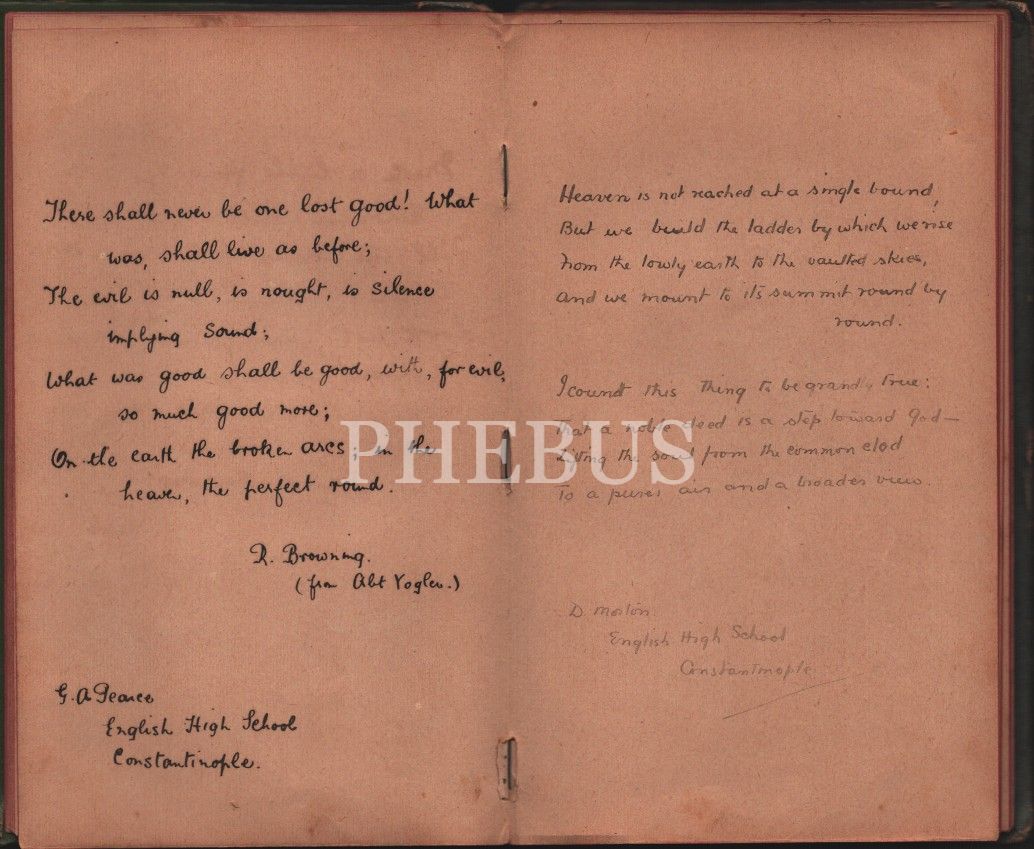 There shall never be one lost good! What
was, shall live as before;
The evil is null, is nought, is silence
implying sound;
What was good shall be good, with, for evil,
so much good more;
On the earth the broken arcs; in the
heaven, the perfect round.
R. Browning.
(from Abt Vogler.)
G. A Pearce
English High School
Constantinople.
Heaven is not reached at a single bound,
But we build the ladder by which we rise
From the lowly earth to the vaulted skies,
And we mount to its summit round by
round.
I count this thing to be grandly true:
That a noble deed is a step toward God—
Lifting the soul from the common clod
To a purer air and a broader view.
D. Morton
English High School
Constantinople
PHEBUS